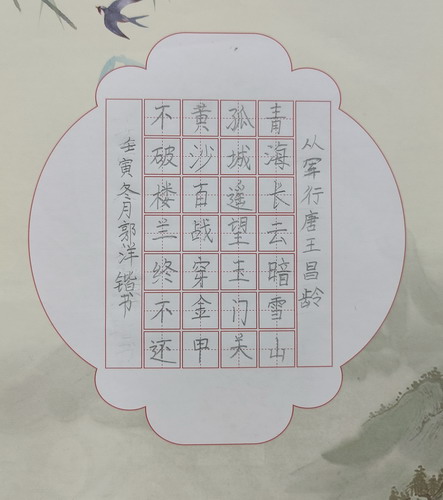 从军行唐王昌龄
青海长云暗雪山
孤城遥望玉门关
黄沙百战穿金甲
不破楼兰终不还
壬寅冬月郭洋锴书